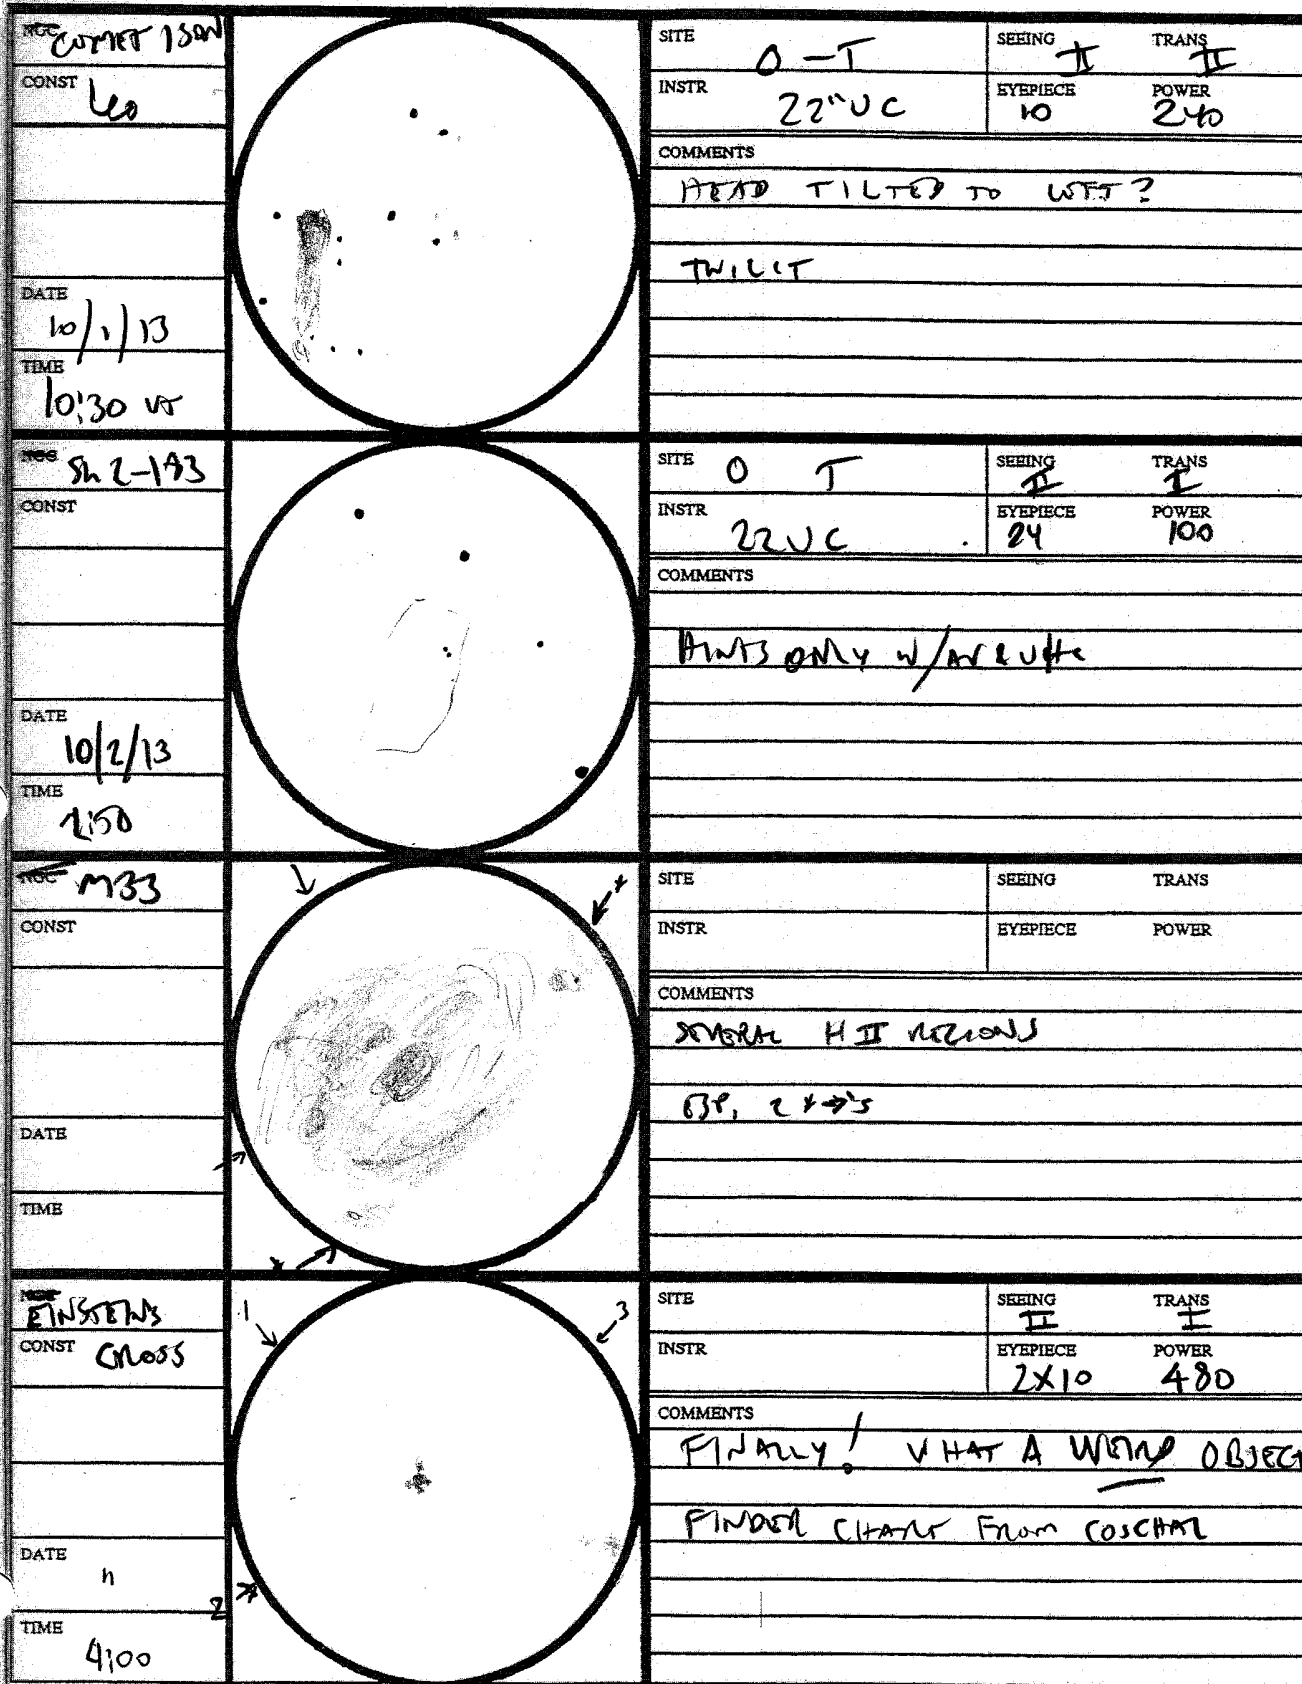 NGC COMET ISON
CONST Leo
DATE
10/1/13
TIME
10:30 UT
SITE O-T
SEEING II TRANS II
INSTR 22" UC
EYEPIECE 10 POWER 240
COMMENTS
HEAD TILTED TO LEFT?
TWILIT
NGC Sh 2-193
CONST
DATE
10/2/13
TIME
2:50
SITE O T
SEEING II TRANS I
INSTR 22 UC
EYEPIECE 24 POWER 100
COMMENTS
HINTS ONLY W/AV & UHC
NGC M33
CONST
DATE
TIME
SITE
SEEING TRANS
INSTR
EYEPIECE POWER
COMMENTS
SEVERAL H II REGIONS
ESP. 2 *→'s
EINSTEIN'S
CONST CROSS
DATE
"
TIME
4:00
1
3
2
SITE
SEEING II TRANS I
INSTR
EYEPIECE 2X10 POWER 480
COMMENTS
FINALLY! WHAT A WEIRD OBJECT
FINDER CHART FROM COSCHAL